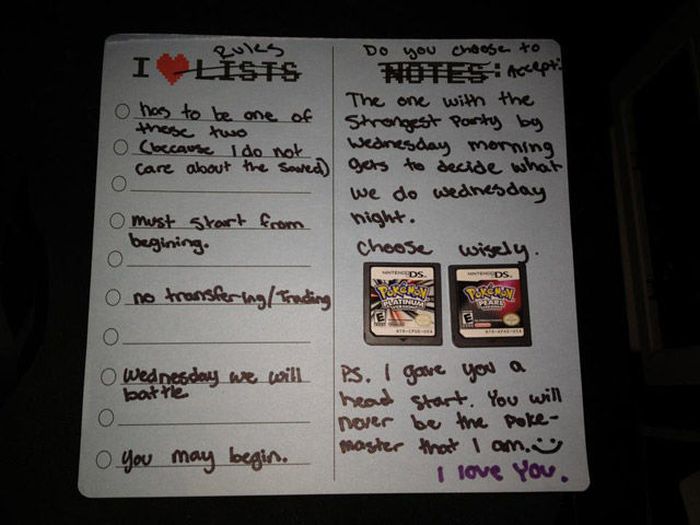 I ❤ LISTS
Rules
has to be one of
these two
(because I do not
care about the saved)
must start from
begining.
no transfering/Trading
Wednesday we will
battle
you may begin.
Do you choose to
NOTES: Accept:
The one with the
Strongest Party by
Wednesday morning
gets to decide what
we do wednesday
night.
Choose wisely.
NINTENDO DS.
POKéMON
PLATINUM
E
NINTENDO DS.
POKéMON
PEARL
E
PS. I gave you a
head start. You will
never be the Poke-
master that I am.
I love You.